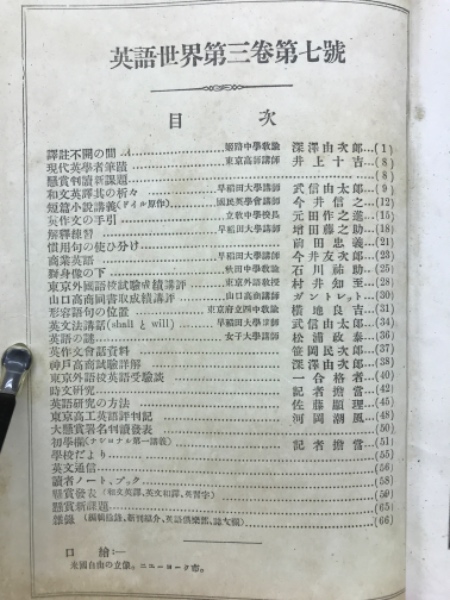 英語世界第三卷第七號
目次
譯註不開の間……姫路中學敎諭 深澤由次郎…(1)
現代英學者筆蹟……東京高師講師 井上十吉…(8)
懸賞判讀新課題……(8)
和文英譯其の折々……早稻田大學講師 武信由太郎…(9)
短篇小說講義(ドイル原作)……國民英學會講師 今井信之…(12)
英作文の手引……立敎中學校長 元田作之進…(15)
解釋練習……早稻田大學講師 增田藤之助…(18)
慣用句の使ひ分け……前田忠義…(21)
商業英語……早稻田大學講師 今井友次郎…(23)
群身像の下……秋田中學敎諭 石川祐助…(25)
東京外國語校試驗成績講評……東京外語敎授 村井知至…(28)
山口高商同書取成績講評……山口高商講師 ガントレット…(30)
形容語句の位置……東京府立四中敎諭 橫地良吉…(31)
英文法講話(shall と will)……早稻田大學講師 武信由太郎…(34)
英語の謎……女子大學講師 松浦政泰…(36)
英作文會話資料……笹岡民次郎…(37)
神戶高商試驗詳解……深澤由次郎…(38)
東京外語校英語受驗談……一合格者…(40)
時文研究……記者擔當…(42)
英語硏究の方法……佐藤顯理…(45)
東京高工英語評判記……河岡潮風…(48)
大懸賞署名判讀發表……(50)
初學欄(ナショナル第一講義)……記者擔當…(51)
學校だより……(55)
英文通信……(56)
讀者ノート、ブック……(58)
懸賞發表(和文英譯、英文和譯、英習字)……(59)
懸賞新課題……(65)
雜錄……(66)
口繪:—
米國自由の立像。ニューヨーク市。